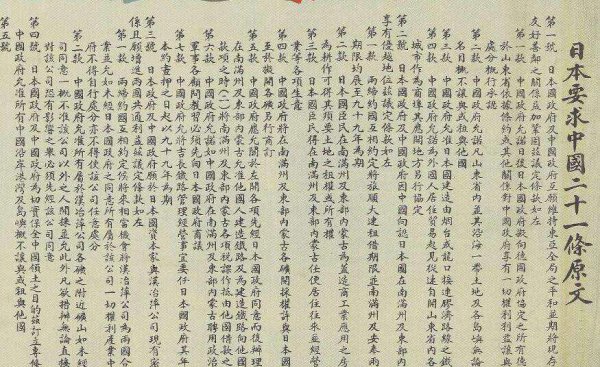 日本要求中國二十一條原文
第一號　日本國政府及中國政府互願維持東亞全局之平和並期將現存
友好善鄰之關係益加鞏固茲議定條款如左
第一款　中國政府允諾日後日本國政府向德國政府協定之所有德
於山東省依據條約或其他關係對中國政府享有一切權利利益讓與
處分概行承認
第二款　中國政府允諾凡山東省內並其沿海一帶土地及各島嶼無論
名目概不讓與或租與他國
第三款　中國政府允准日本國建造由烟台或龍口接連膠濟路線之鐵
第四款　中國政府允諾為外國人居住貿易起見從速自開山東省內各
城市作為商埠其應開地方另行協定
第二號　日本國政府及中國政府因中國向認日本國在南滿洲及東部內
享有優越地位茲議定條款如左
第一款　兩締約國互相約定將旅順大連租借期限並南滿洲及安奉兩
期限均展至九十九年為期
第二款　日本國臣民在南滿洲及東部內蒙古為蓋造商工業應用之房
為耕作可得其須要土地之租權或所有權
第三款　日本國臣民得在南滿洲及東部內蒙古任便居住往來並經營
業等各項生意
第四款　中國政府允將在南滿洲及東部內蒙古各礦開採權許與日本國
至於擬開各礦另行商訂
第五款　中國政府應允關於左開各項先經日本國政府同意而後辦理
在南滿洲及東部內蒙古允准他國人建造鐵路或為建造鐵路向他國
款項之時(一)將南滿洲及東部內蒙古各項稅課作抵由他國借款之
第六款　中國政府允諾如中國政府在南滿洲及東部內蒙古聘用政治
軍事各顧問教習必須先向日本國政府商議
第七款　中國政府允將吉長鐵路管理經營事宜委任日本國政府其年
本約畫押之日起以九十九年為期
第三號　日本國政府及中國政府願於日本國資本家與漢冶萍公司現有密
係且願增進兩國共通利益茲議定條款如左
第一款　兩締約國互相約定俟將來相當機會將漢冶萍公司作為兩國合
業並允如未經日本國政府之同意所有屬於該公司一切權利產業中
府不得自行處分亦不得使該公司任意處分
第二款　中國政府允准所有屬於漢冶萍公司各礦之附近礦山如未經
司同意一概不准該公司以外之人開採並允此外凡欲措辦無論直接
對該公司恐有影響之舉必須先經該公司同意
第四號　日本國政府及中國政府為切實保全中國領土之目的茲訂立專條
中國政府允准所有中國沿岸港灣及島嶼概不讓與或租與他國
第五號